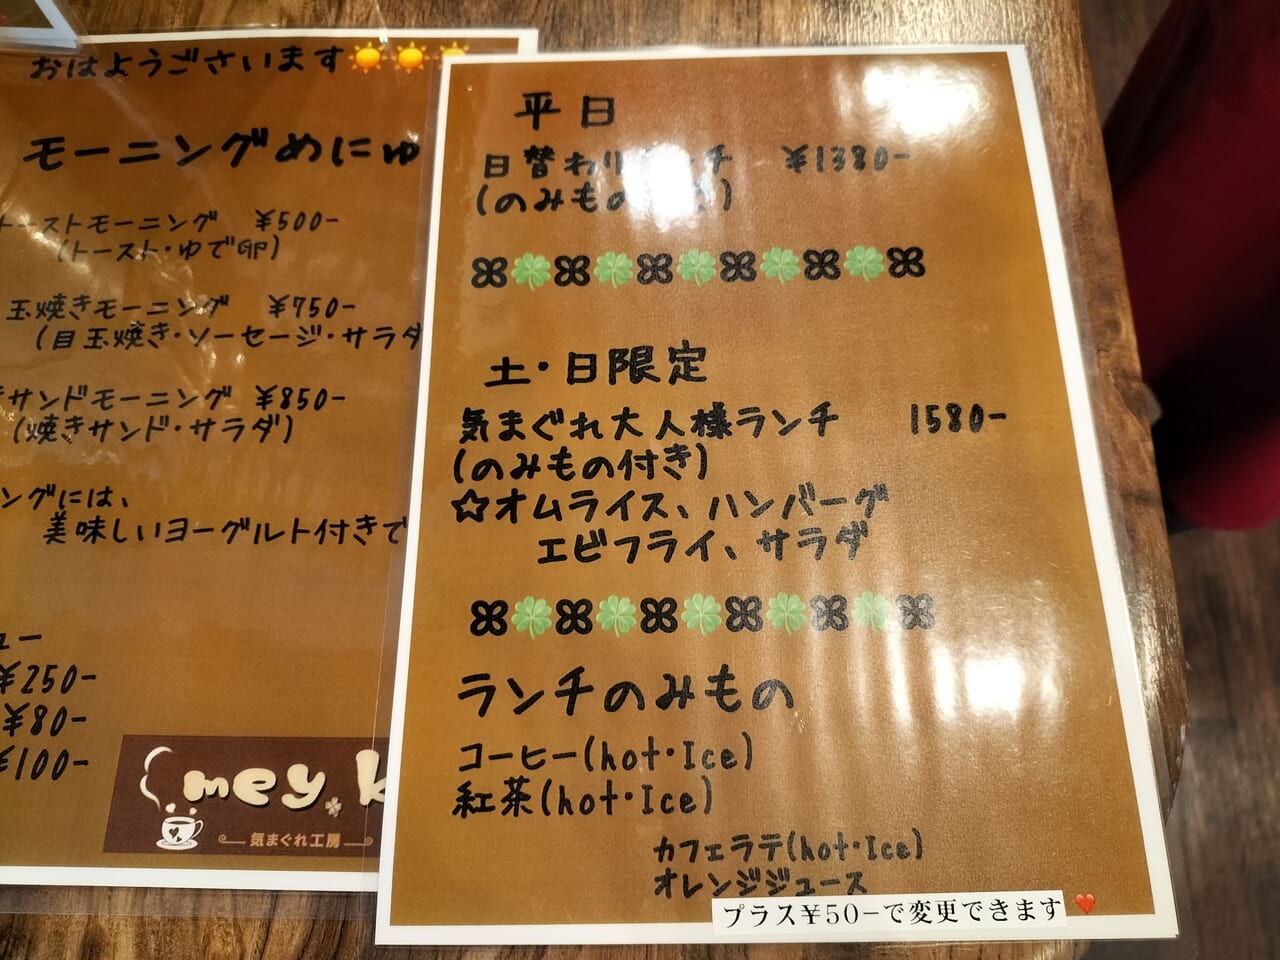 おはようございます
モーニングめにゅ
トーストモーニング ¥500-
(トースト・ゆで卵)
玉焼きモーニング ¥750-
(目玉焼き・ソーセージ・サラダ
サンドモーニング ¥850-
(焼きサンド・サラダ)
ングには、
美味しいヨーグルト付きで
ュー
¥250-
¥80-
¥100-
mey.k
気まぐれ工房
平日
日替わりランチ ¥1380-
(のみもの
土・日限定
気まぐれ大人様ランチ 1580-
(のみもの付き)
☆オムライス、ハンバーグ
エビフライ、サラダ
ランチのみもの
コーヒー(hot・Ice)
紅茶(hot・Ice)
カフェラテ(hot・Ice)
オレンジジュース
プラス¥50-で変更できます